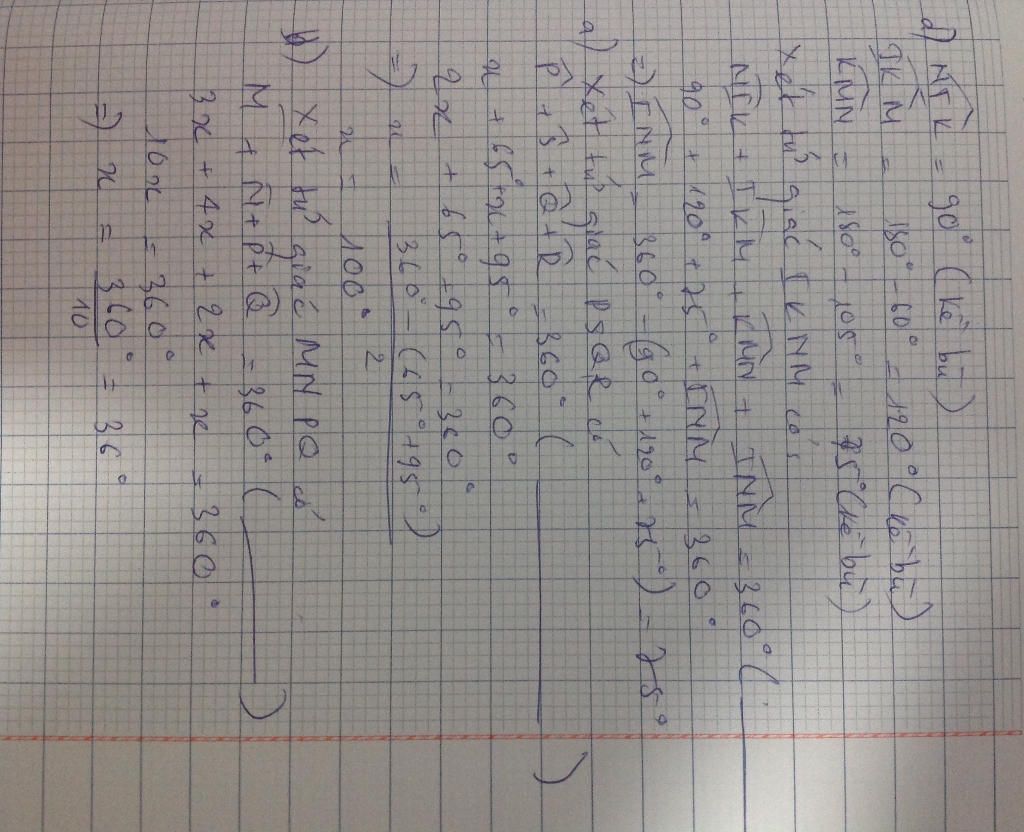 d) NIK = 90° (Kề bù)
IKM = 180° - 60° = 120° (Kề bù)
KMN = 180° - 105° = 75° (Kề bù)
Xét tứ giác IKNM có
NIK + IKM + KMN + INM = 360° (
90° + 120° + 75° + INM = 360°
=) INM = 360° - (90° + 120° + 75°) = 75°
a) Xét tứ giác PSQR có
P + S + Q + R = 360° ( )
x + 65° + x + 95° = 360°
2x + 65° + 95° = 360°
=) x = 360° - (65° + 95°) / 2
x = 100°
b) Xét tứ giác MNPQ có
M + N + P + Q = 360° ( )
3x + 4x + 2x + x = 360°
10x = 360°
=) x = 360° / 10 = 36°